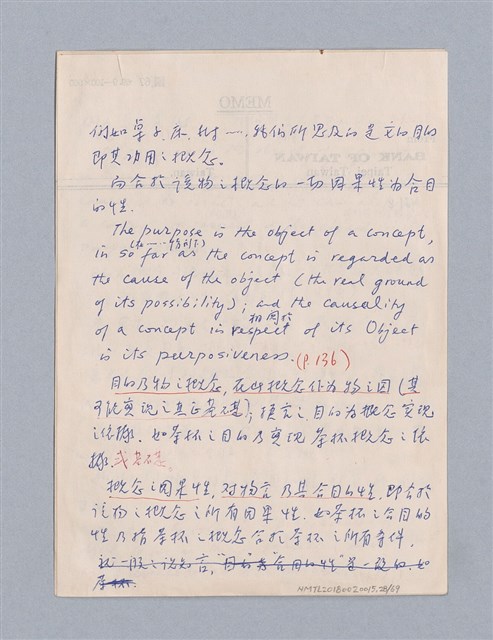 例如桌子、床、树……，我们所思及的是它的目的
即其功用之概念。
而合於该物之概念的一切因果性为合目
的性.
The purpose is the object of a concept,
in so far as the concept is regarded as
the cause of the object (the real ground
of its possibility); and the causality
相同於
of a concept in respect of its Object
is its purposiveness. (p.136)
目的乃物之概念, 在此概念作为物之因 (其
可能实现之真正基础); 换言之, 目的为概念实现
之依据. 如茶杯之目的乃实现茶杯概念之依
据. 或基础.
概念之因果性, 对物言乃其合目的性. 即合於
该物之概念之所有因果性. 如茶杯之合目的
性乃指茶杯之概念合於茶杯之所有条件.
就一般之认知言, "目的"与"合目的性"是一致的. 如
茶杯.
NMTL20180020015.28/69
MEMO
BANK OF TAIWAN